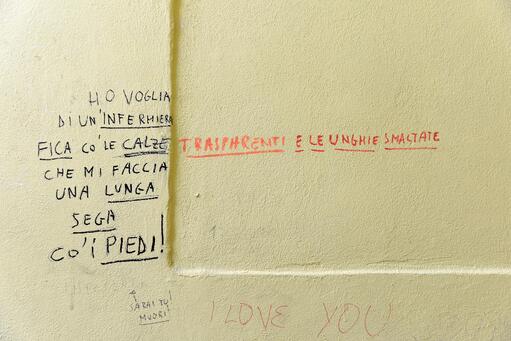 HO VOGLIA
DI UN'INFERMIERA
FICA CO'LE CALZE TRASPARENTI E LE UNGHIE SMALTATE
CHE MI FACCIA
UNA LUNGA
SEGA
CO'I PIEDI!
MUORI!
I LOVE YOU